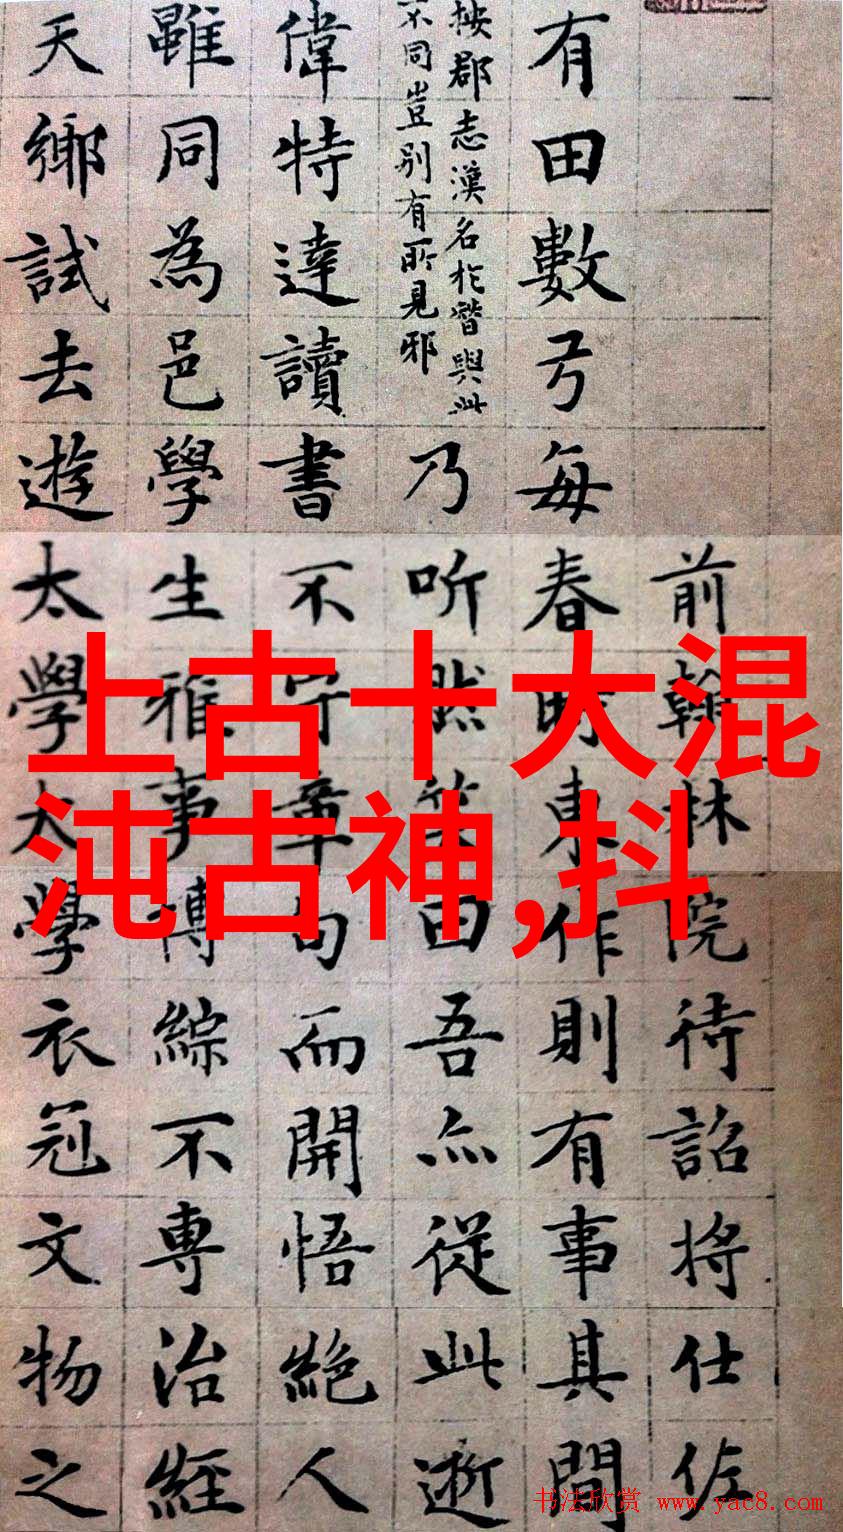 前翰林院待詔將仕佐
有田數弓每春時東作則有事其間
按郡志漢名於與此
不同豈別有所見邪
乃听然笑曰吾亦從此逝
偉特達讀書不守章句而開悟絕人
雖同為邑學生雅事博綜不專治經
天鄉試去遊太學太學衣冠文物之
上古十大混
沌古神,抖
书法欣赏 www.yac8.com